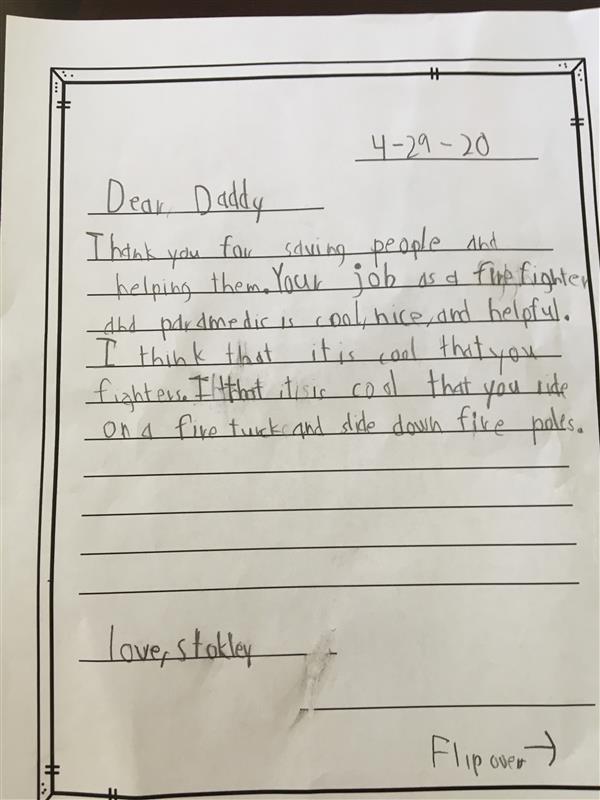 4-29-20
Dear, Daddy
Thank you for saving people and
helping them. Your job as a firefighter
and paramedic is cool, nice, and helpful.
I think that it is cool that you
fighters. I that it is cool that you ride
on a fire turck and slide down fire poles.
love, stokley
Flip over →